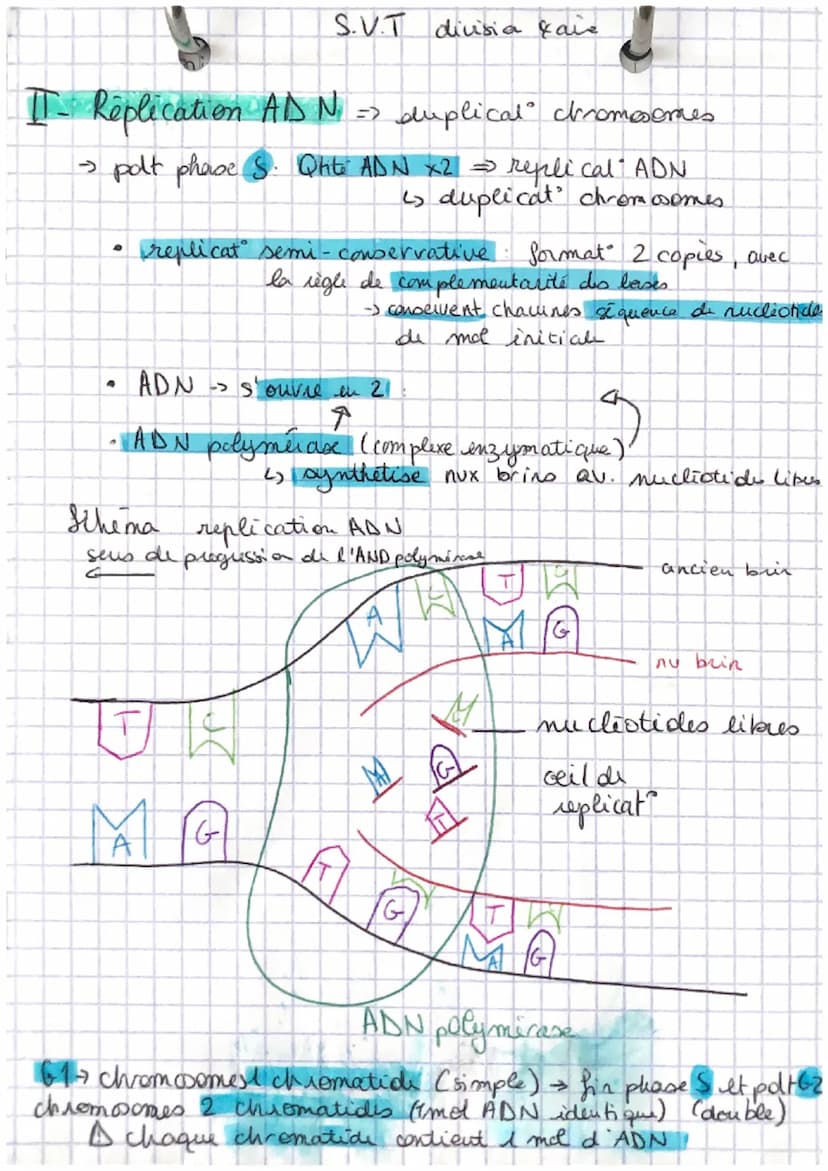 S.V.T divisia
II- Réplication ADN => duplicat° chromosomes
→ pdt phase S. Qtité ADN x2 => replicat° ADN
↳ duplicat° chromosomes
• replicat° semi-conservative : format° 2 copies, avec
la règle de complémentarité des bases
→ conservent chacunes séquence de nucléotide
de mol initiale
• ADN → s'ouvre en 2 :
• ADN polymérase (complexe enzymatique)
↳ synthétise nvx brins av. nucléotides libres
Schéma replication ADN
sens de progression de l'AND polymérase
ancien brin
T C
A C
A G
nv brin
T C
C
nucléotides libres
A G
oeil de
replicat°
T
A G
T G
T C
A G
ADN polymérase
G1 → chromosomes 1 chromatide (simple) → fin phase S et pdt G2
chromosomes 2 chromatides (1 mol ADN identique) (double)
Δ chaque chromatide contient 1 mol d'ADN